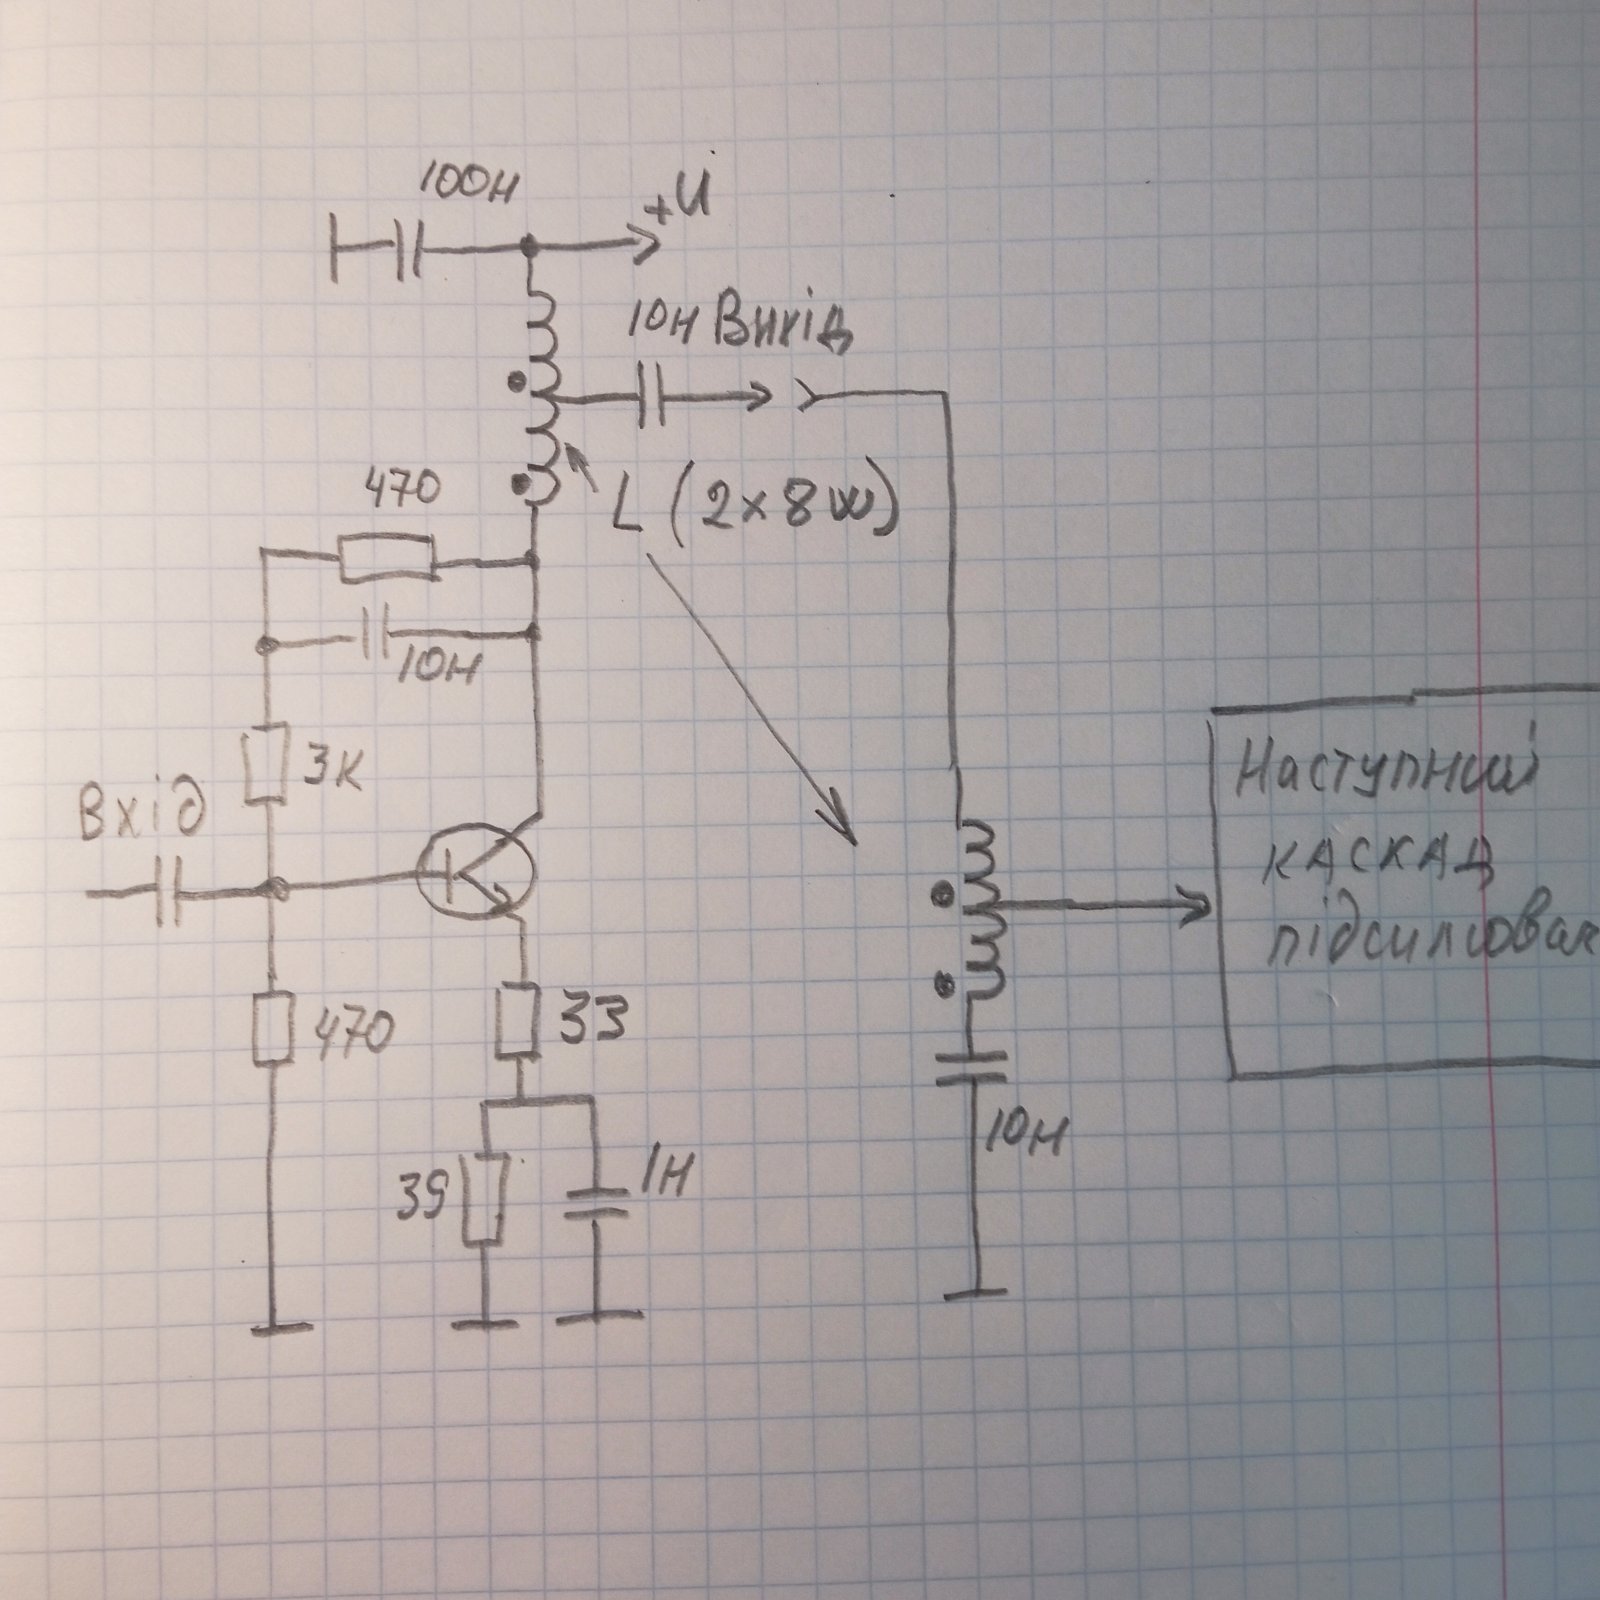 100н
+U
10н Вихід
470
L (2x8w)
10н
3к
Вхід
Наступний
каскад
470
33
10н
39
1н